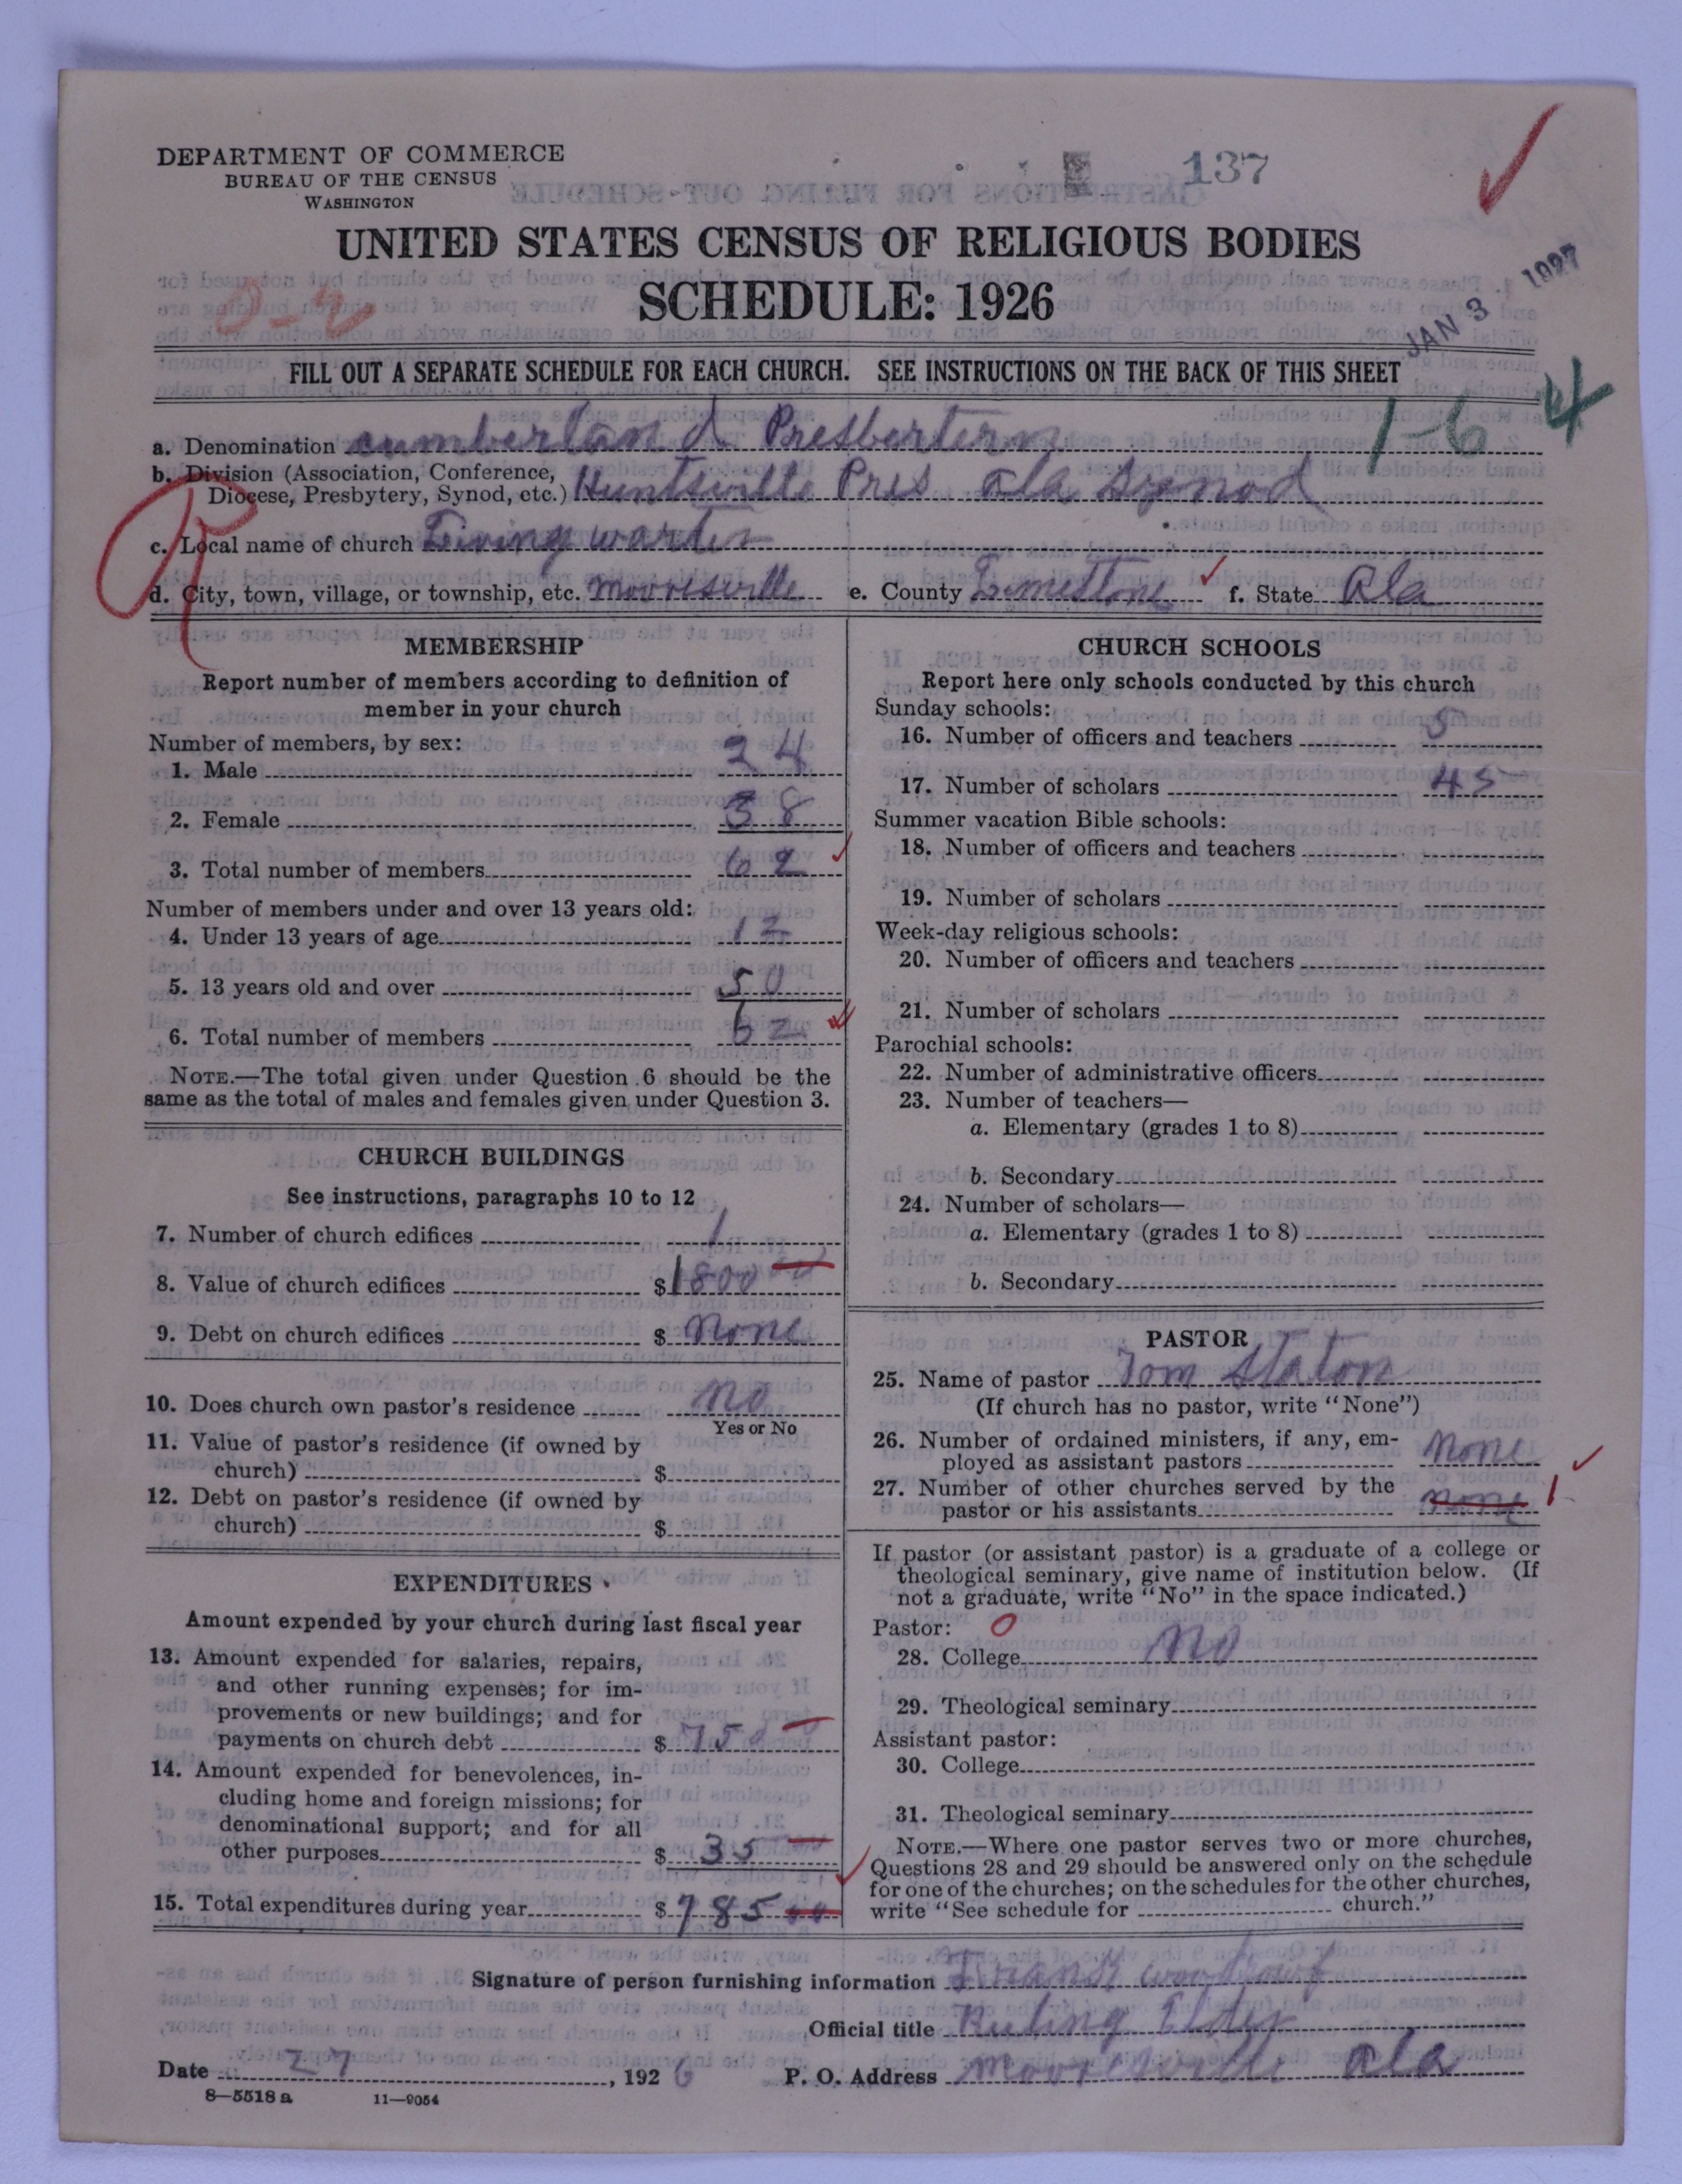 DEPARTMENT OF COMMERCE
BUREAU OF THE CENSUS
WASHINGTON
137
UNITED STATES CENSUS OF RELIGIOUS BODIES
SCHEDULE: 1926
JAN 3 1927
FILL OUT A SEPARATE SCHEDULE FOR EACH CHURCH. SEE INSTRUCTIONS ON THE BACK OF THIS SHEET
1-6 4
a. Denomination cumberland Presbertern
b. Division (Association, Conference,
Diocese, Presbytery, Synod, etc.) Huntsville Pres Ala Synod
c. Local name of church Living warter
d. City, town, village, or township, etc. Mooresville e. County Limestone f. State Ala
MEMBERSHIP
Report number of members according to definition of
member in your church
Number of members, by sex:
1. Male 24
2. Female 38
3. Total number of members 62
Number of members under and over 13 years old:
4. Under 13 years of age 12
5. 13 years old and over 50
6. Total number of members 62
NOTE.—The total given under Question 6 should be the
same as the total of males and females given under Question 3.
CHURCH BUILDINGS
See instructions, paragraphs 10 to 12
7. Number of church edifices 1
8. Value of church edifices $1800 00
9. Debt on church edifices $ None
10. Does church own pastor's residence No
Yes or No
11. Value of pastor's residence (if owned by
church) $
12. Debt on pastor's residence (if owned by
church) $
EXPENDITURES
Amount expended by your church during last fiscal year
13. Amount expended for salaries, repairs,
and other running expenses; for im-
provements or new buildings; and for
payments on church debt $ 750
14. Amount expended for benevolences, in-
cluding home and foreign missions; for
denominational support; and for all
other purposes $ 35
15. Total expenditures during year $ 785 00
CHURCH SCHOOLS
Report here only schools conducted by this church
Sunday schools:
16. Number of officers and teachers 5
17. Number of scholars 45
Summer vacation Bible schools:
18. Number of officers and teachers
19. Number of scholars
Week-day religious schools:
20. Number of officers and teachers
21. Number of scholars
Parochial schools:
22. Number of administrative officers
23. Number of teachers—
a. Elementary (grades 1 to 8)
b. Secondary
24. Number of scholars—
a. Elementary (grades 1 to 8)
b. Secondary
PASTOR
25. Name of pastor Tom Staton
(If church has no pastor, write "None")
26. Number of ordained ministers, if any, em-
ployed as assistant pastors None
27. Number of other churches served by the
pastor or his assistants none 1
If pastor (or assistant pastor) is a graduate of a college or
theological seminary, give name of institution below. (If
not a graduate, write "No" in the space indicated.)
Pastor: 0
28. College No
29. Theological seminary
Assistant pastor:
30. College
31. Theological seminary
NOTE.—Where one pastor serves two or more churches,
Questions 28 and 29 should be answered only on the schedule
for one of the churches; on the schedules for the other churches,
write "See schedule for church."
Signature of person furnishing information Frank
Official title Ruling Elder
Date 27, 1926 P. O. Address Mooresville Ala
8—5518 a 11—9054